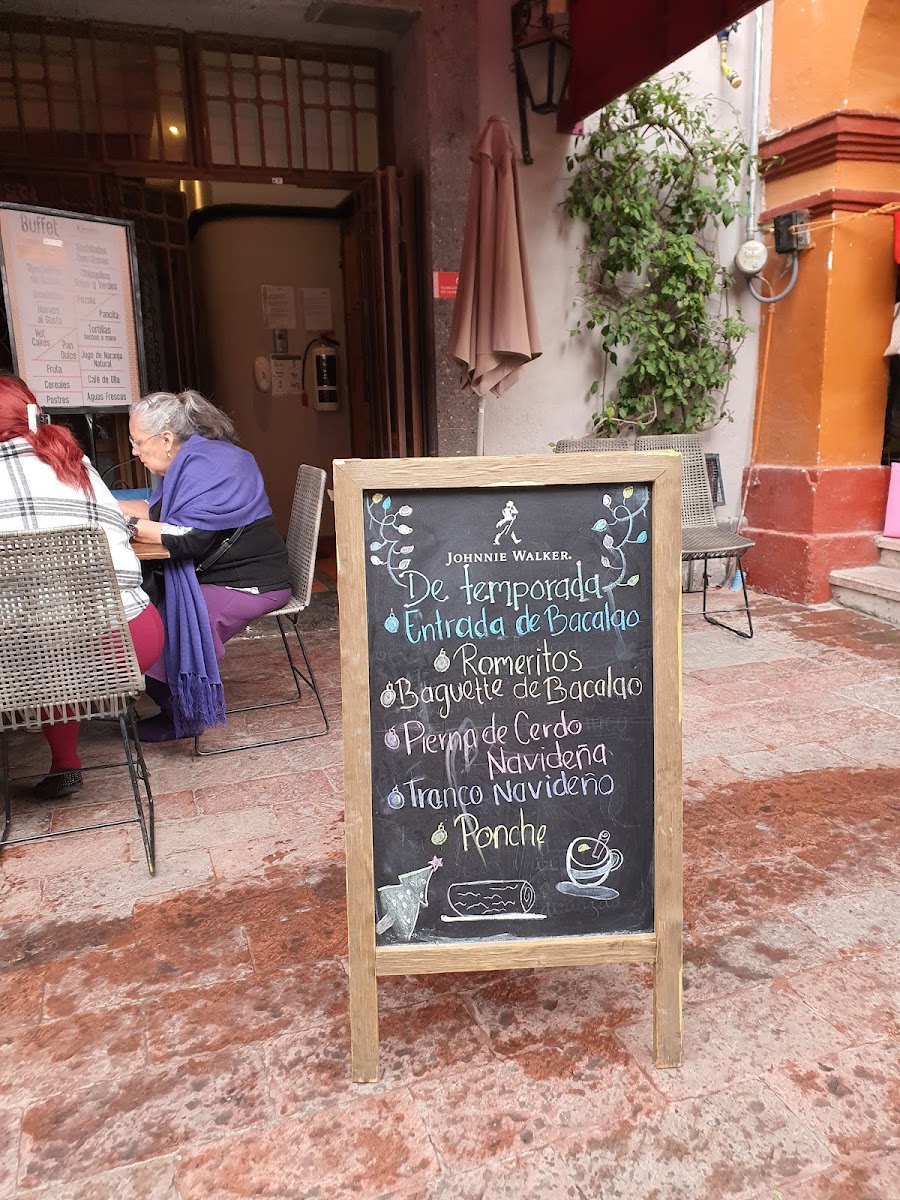 Buffet
Enchiladas
Chilaquiles
Rojos y Verdes
Pozole
Huevos
al Gusto
Pancita
Hot
Cakes
Tortillas
hechas a mano
Pan
Dulce
Jugo de Naranja
Natural
Fruta
Cereales
Café de Olla
Postres
Aguas Frescas
JOHNNIE WALKER.
De temporada
Entrada de Bacalao
Romeritos
Baguette de Bacalao
Pierna de Cerdo
Navideña
Tranco Navideño
Ponche